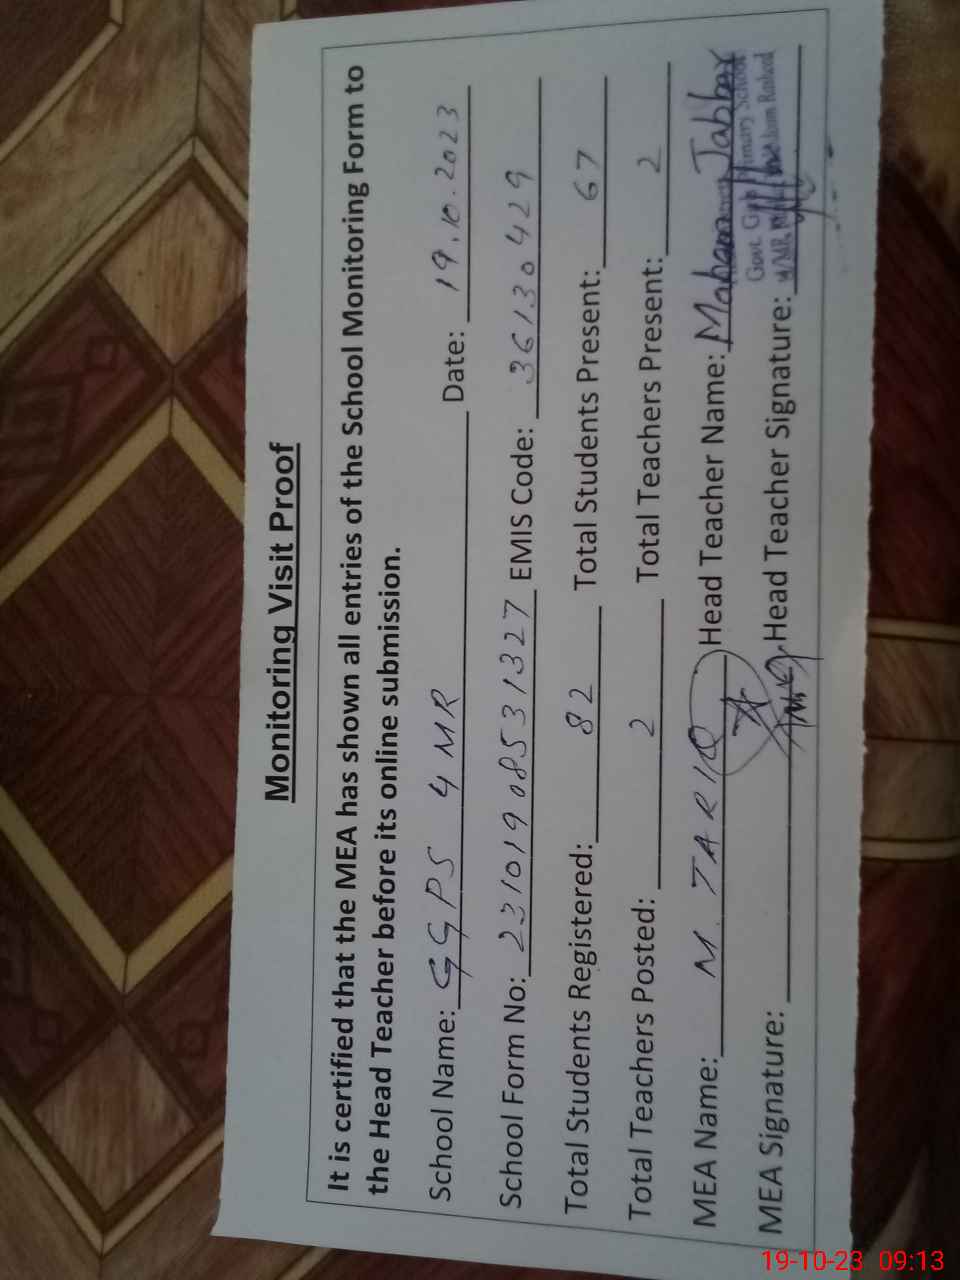 Monitoring Visit Proof
It is certified that the MEA has shown all entries of the School Monitoring Form to
the Head Teacher before its online submission.
School Name: GGPS 4 MR Date: 19.10.2023
School Form No: 231019085313​27 EMIS Code: 36130429
Total Students Registered: 82 Total Students Present: 67
Total Teachers Posted: 2 Total Teachers Present: 2
MEA Name: M. TARIQ Head Teacher Name: Jabbar
Govt. Primary School
MEA Signature: Head Teacher Signature:
19-10-23 09:13